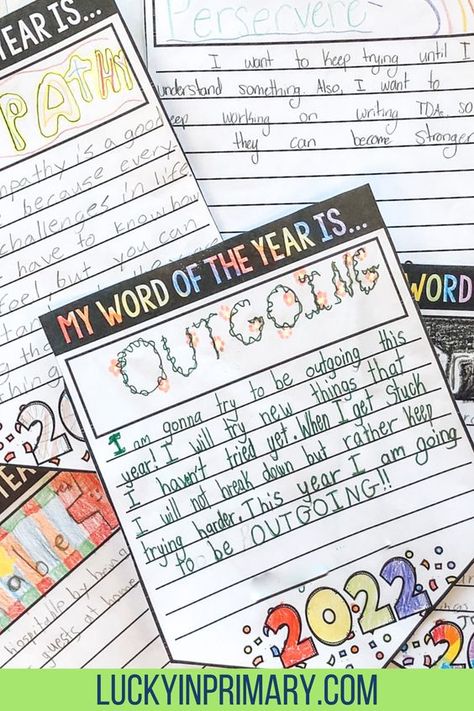 YEAR IS...
PATHY
mpathy is a good
because every
challenges in life
have to know how
feel, but you can
Perservere
I want to keep trying until I
understand something. Also, I want to
keep working on writing TDAs, so
they can become stronger
MY WORD OF THE YEAR IS...
OUTGOING
I am gonna try to be outgoing this
year! I will try new things that
I haven't tried yet. When I get stuck
I will not break down but rather keep
trying harder. This year I am going
to be OUTGOING!!
2022
WORD
20
YEAR IS
able
hospitable by being
guests at home
202
LUCKYINPRIMARY.COM